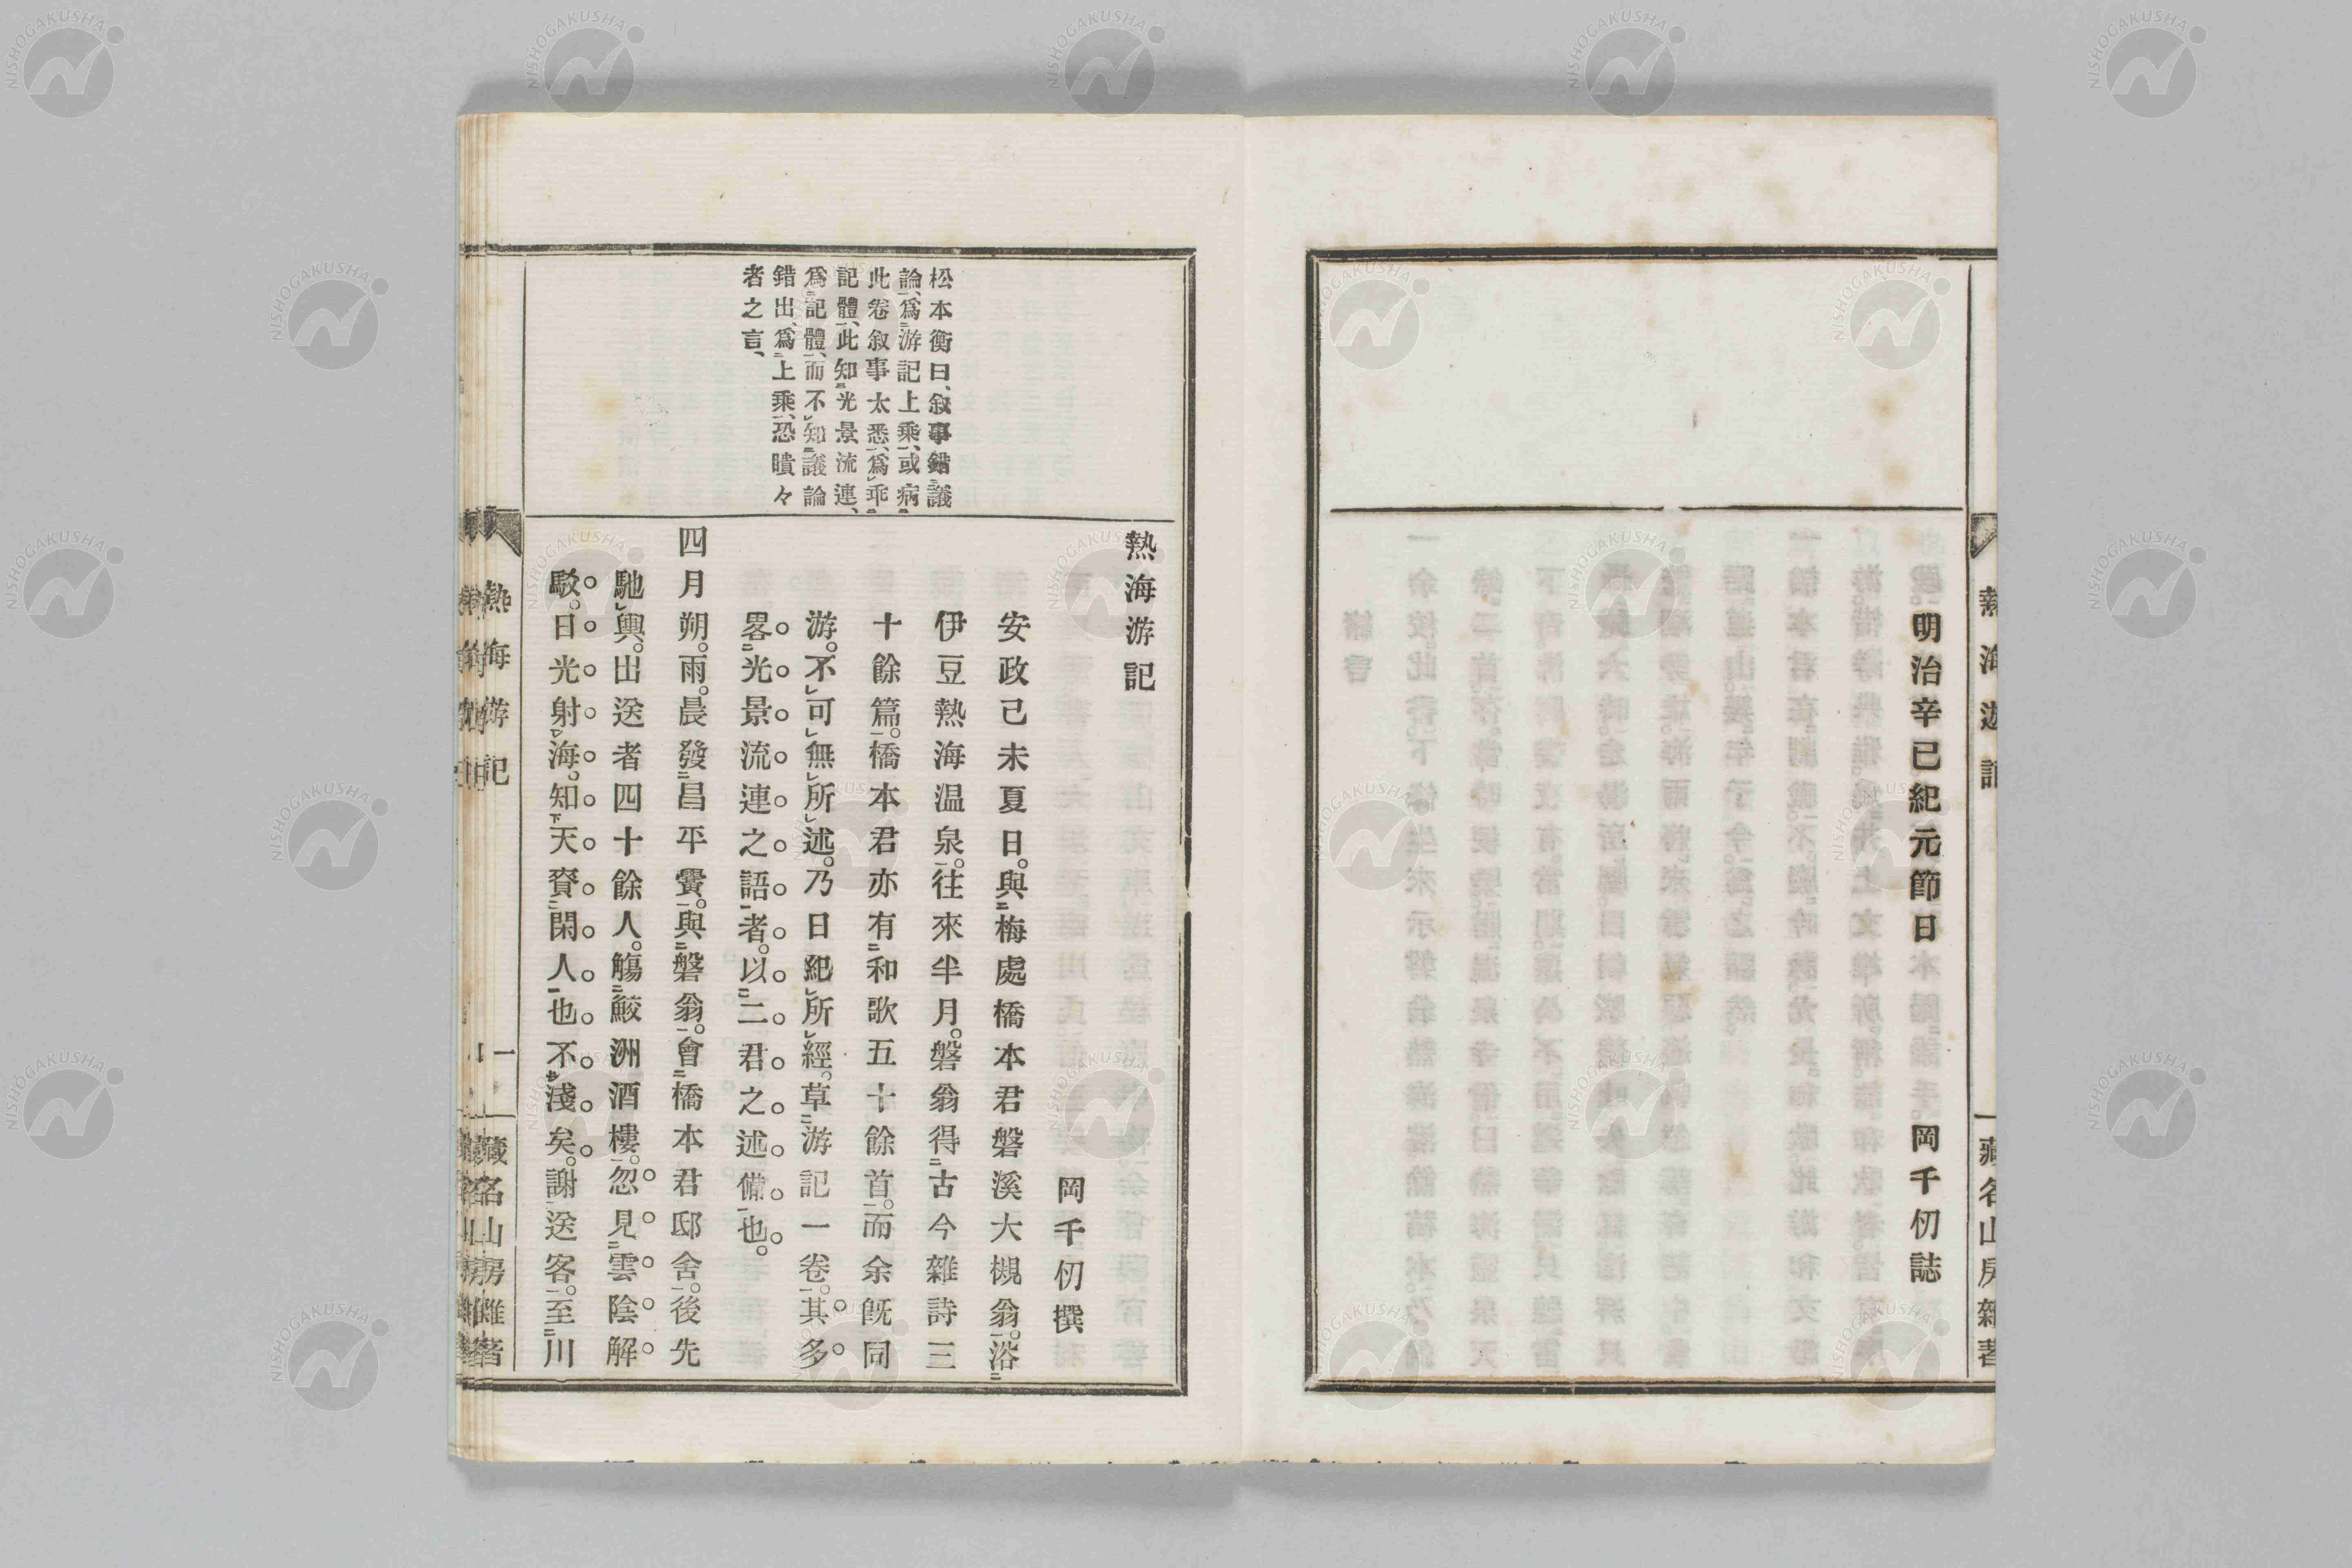 明治辛巳紀元節日 岡千仞誌
藏名山房雜著
熱海游記
岡千仞撰
安政己未夏日。與梅處橋本君磐溪大槻翁。浴
伊豆熱海温泉。往來半月。磐翁得古今雜詩三
十餘篇。橋本君亦有和歌五十餘首。而余旣同
游。不可無所述。乃日紀所經。草游記一卷。其多
畧光景流連之語者。以二君之述備也。
四月朔。雨。晨發昌平黌。與磐翁。會橋本君邸舍。後先
馳輿。出送者四十餘人。觴鮫洲酒樓。忽見雲陰解
駁。日光射海。知天賚閑人也不淺矣。謝送客。至川
松本衡曰、叙事錯議
論、爲游記上乘、或病
此卷叙事太悉、爲乖
記體、此知光景流連、
爲記體、而不知議論
錯出、爲上乘、恐瞶々
者之言、
熱海游記
一
藏名山房雜著
NISHOGAKUSHA